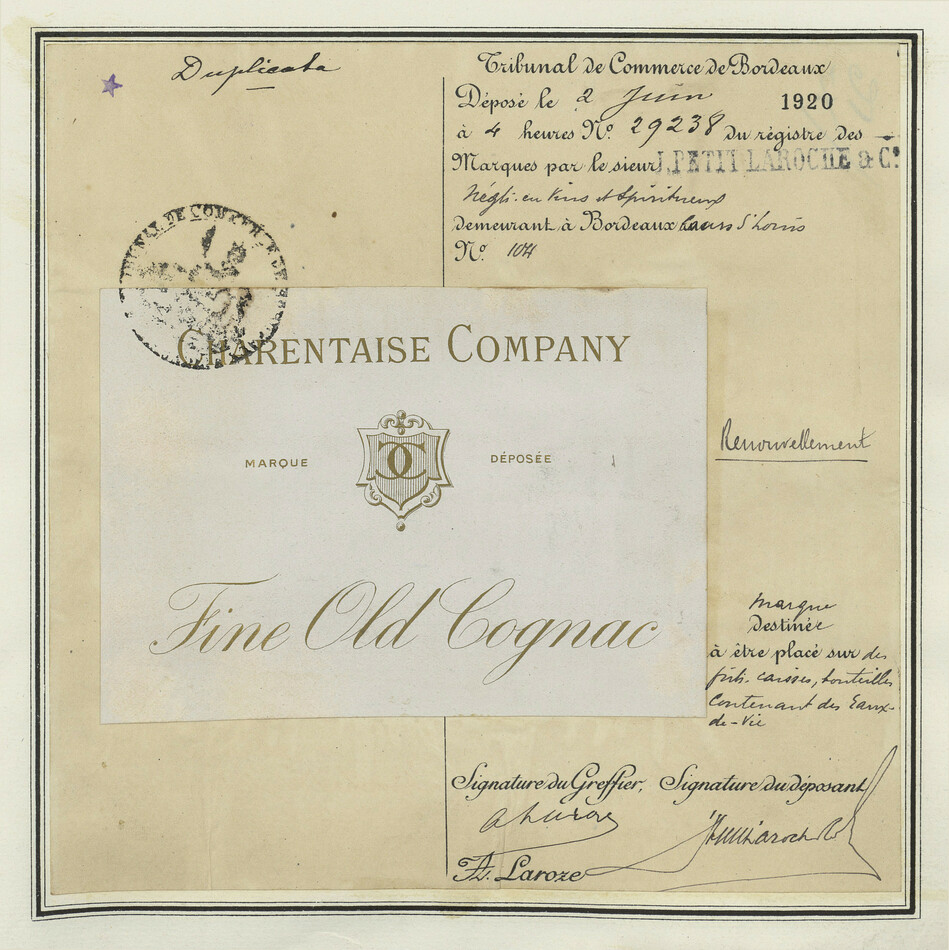 Duplicata
Tribunal de Commerce de Bordeaux
Déposé le 2 Juin 1920
à 4 heures N° 29238 du régistre des
Marques par le sieur J. PETIT LAROCHE & C°
Négts. en Vins et Spiritueux
demeurant à Bordeaux Cours St Louis
N° 104
TRIBUNAL DE COMMERCE DE
CHARENTAISE COMPANY
MARQUE DÉPOSÉE
CC
Fine Old Cognac
Renouvellement
marque
destinée
à être placé sur des
fûts, caisses, bouteilles
contenant des Eaux-
de-Vie
Signature du Greffier, Signature du déposant
A. Laroze